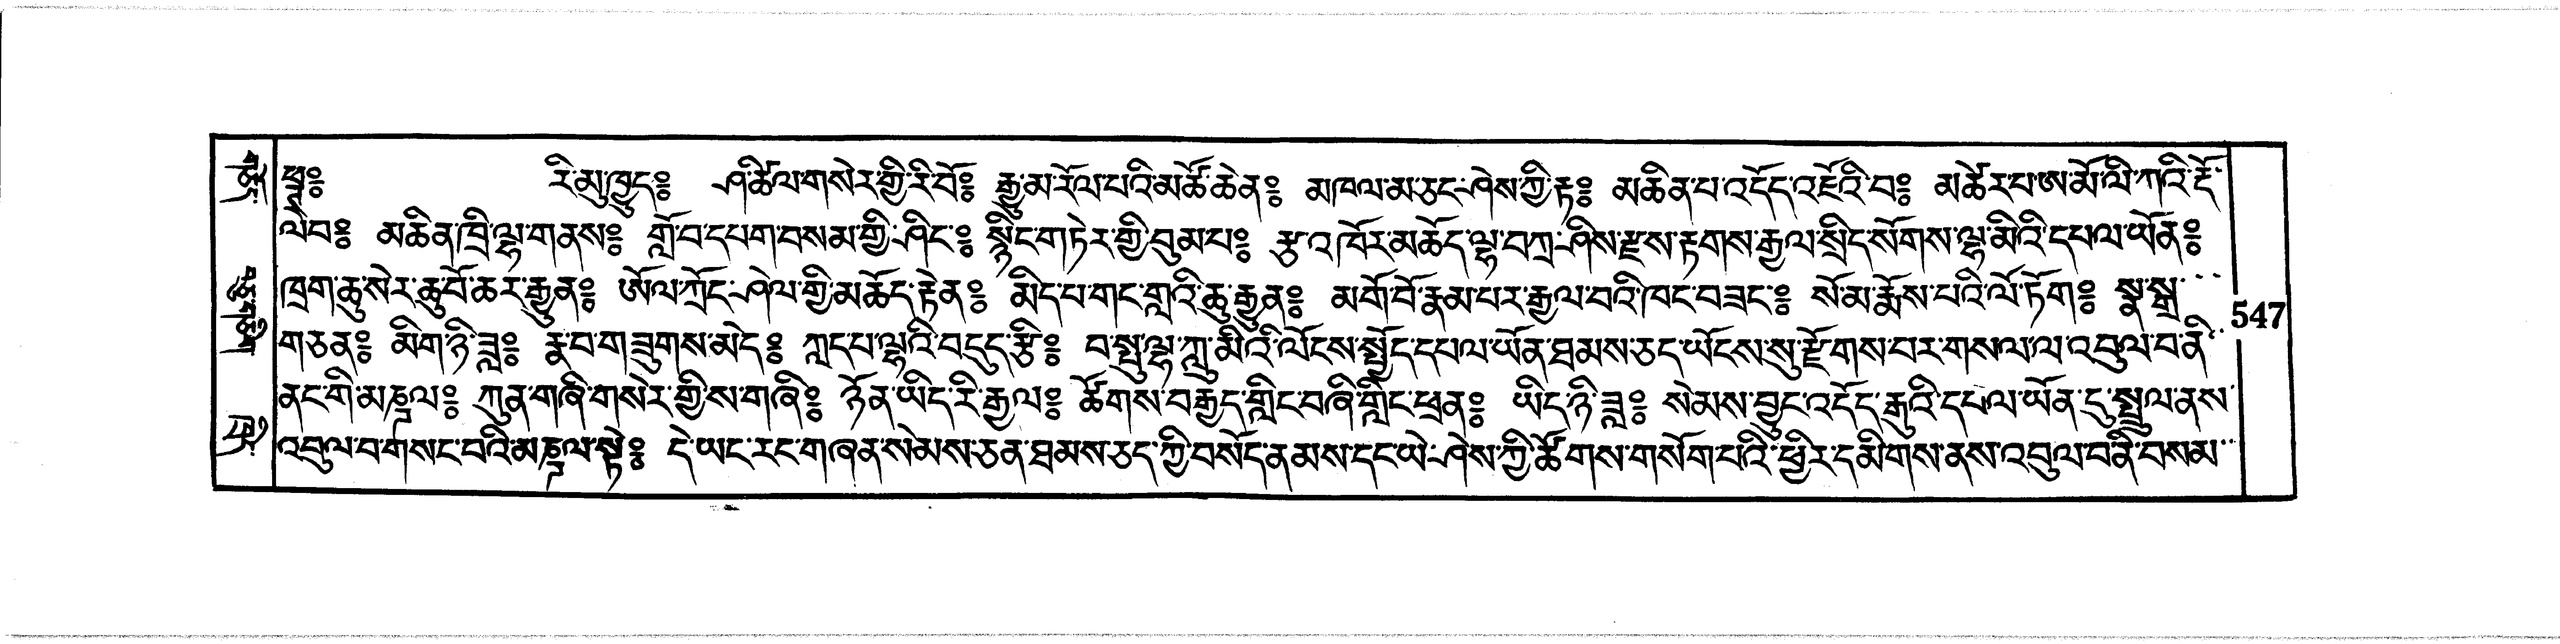 ཕྲ༔ རི་མུ་ཁྱུད༔ ཤ་ཚིལ་གསེར་གྱི་རི་བོ༔ རྒྱུ་མ་རོལ་པའི་མཚོ་ཆེན༔ མཁལ་མ་ཅང་ཤེས་ཀྱི་རྟ༔ མཆིན་པ་འདོད་འཇོའི་བ༔ མཚེར་པ་ཨ་མོ་ལི་ཀའི་རྡོ་
ལེབ༔ མཆིན་ཁྲི་ལྷ་གནས༔ གློ་བ་དཔག་བསམ་གྱི་ཤིང་༔ སྙིང་གཏེར་གྱི་བུམ་པ༔ རྩ་འཁོར་མཆོད་ལྷ་བཀྲ་ཤིས་རྫས་རྟགས་རྒྱལ་སྲིད་སོགས་ལྷ་མིའི་དཔལ་ཡོན༔
ཁྲག་ཆུ་སེར་ཆུ་བོ་ཆར་རྒྱུན༔ ཨོལ་ཀྲོང་ཤེལ་གྱི་མཆོད་རྟེན༔ མིད་པ་གང་གླའི་ཆུ་རྒྱུན༔ མགོ་བོ་རྣམ་པར་རྒྱལ་བའི་ཁང་བཟང་༔ སོམ་རྨོས་པའི་ལོ་ཏོག༔ སྣ་སྒྲ་
གཅན༔ མིག་ཉི་ཟླ༔ རྣ་བ་གཟུགས་མེད༔ ཀླད་པ་ལྷའི་བདུད་རྩི༔ བསྤུ་ལྷ་ཀླུ་མིའི་ལོངས་སྤྱོད་དཔལ་ཡོན་ཐམས་ཅད་ཡོངས་སུ་རྫོགས་པར་གསལ་ལ་འབུལ་བ་ནི་
ནང་གི་མཎྜལ༔ ཀུན་གཞི་གསེར་གྱིས་གཞི༔ ཉོན་ཡིད་རི་རྒྱལ༔ ཚོགས་བརྒྱད་གླིང་བཞི་གླིང་ཕྲན༔ ཡིད་ཉི་ཟླ༔ སེམས་བྱུང་འདོད་རྒུའི་དཔལ་ཡོན་དུ་སྤྲུལ་ནས་
འབུལ་བ་གསང་བའི་མཎྜལ་སྟེ༔ དེ་ཡང་རང་གཞན་སེམས་ཅན་ཐམས་ཅད་ཀྱི་བསོད་ནམས་དང་ཡེ་ཤེས་ཀྱི་ཚོགས་གསོག་པའི་ཕྱིར་དམིགས་ནས་འབུལ་བ་ནི་བསམ་
547